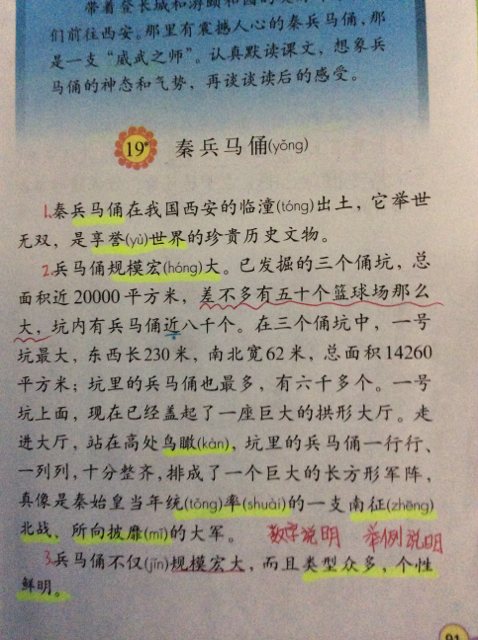 带着登长城和游颐和园的
们前往西安。那里有震撼人心的秦兵马俑，那
是一支“威武之师”。认真默读课文，想象兵
马俑的神态和气势，再谈谈读后的感受。
19* 秦兵马俑(yǒng)
1.秦兵马俑在我国西安的临潼(tóng)出土，它举世
无双，是享誉(yù)世界的珍贵历史文物。
2.兵马俑规模宏(hóng)大。已发掘的三个俑坑，总
面积近20000平方米，差不多有五十个篮球场那么
大，坑内有兵马俑近八千个。在三个俑坑中，一号
坑最大，东西长230米，南北宽62米，总面积14260
平方米；坑里的兵马俑也最多，有六千多个。一号
坑上面，现在已经盖起了一座巨大的拱形大厅。走
进大厅，站在高处鸟瞰(kàn)，坑里的兵马俑一行行、
一列列，十分整齐，排成了一个巨大的长方形军阵，
真像是秦始皇当年统(tǒng)率(shuài)的一支南征(zhēng)
北战、所向披靡(mǐ)的大军。 数字说明 举例说明
3.兵马俑不仅(jǐn)规模宏大，而且类型众多，个性
鲜明。
91